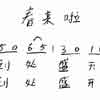 春来啦
5 0 6 5 | 3 0 1
到 处 盛 开
到 处 盛 开